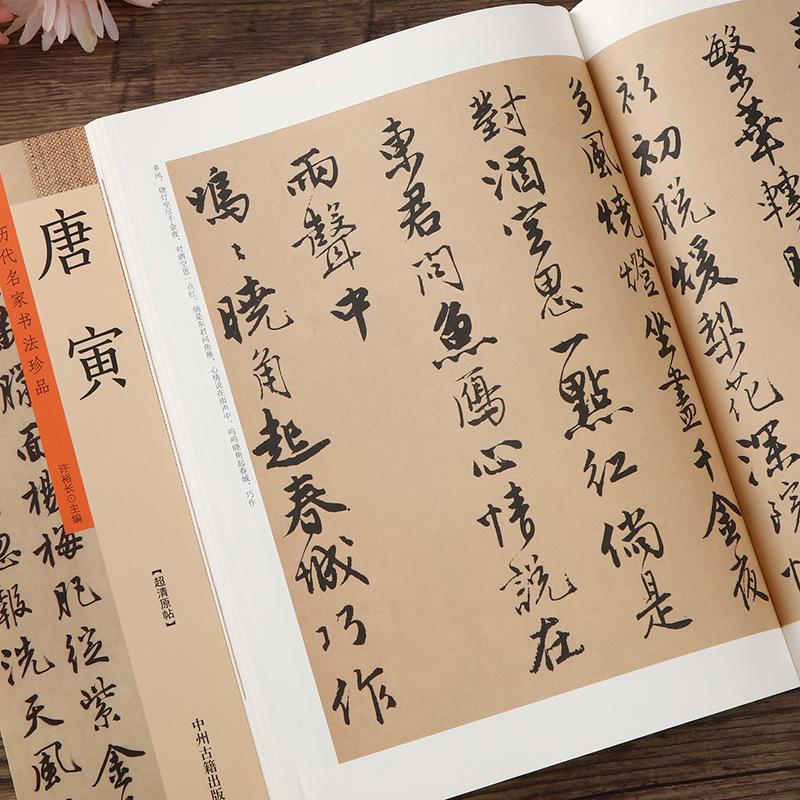 繁華轉
衫初脫煖梨花深院
多風燒燈坐盡千金夜
對酒空思一點紅倘是
東君問魚鴈心情說在
雨聲中
嗚〻曉角起春城巧作
多风，烧灯坐尽千金夜，对酒空思一点红。倘是东君问鱼雁，心情说在雨声中。呜呜晓角起春城，巧作
唐寅
历代名家书法珍品
许裕长⊙主编
【超清原帖】
中州古籍出版
面楊梅肥綻紫金
忽報洗天風